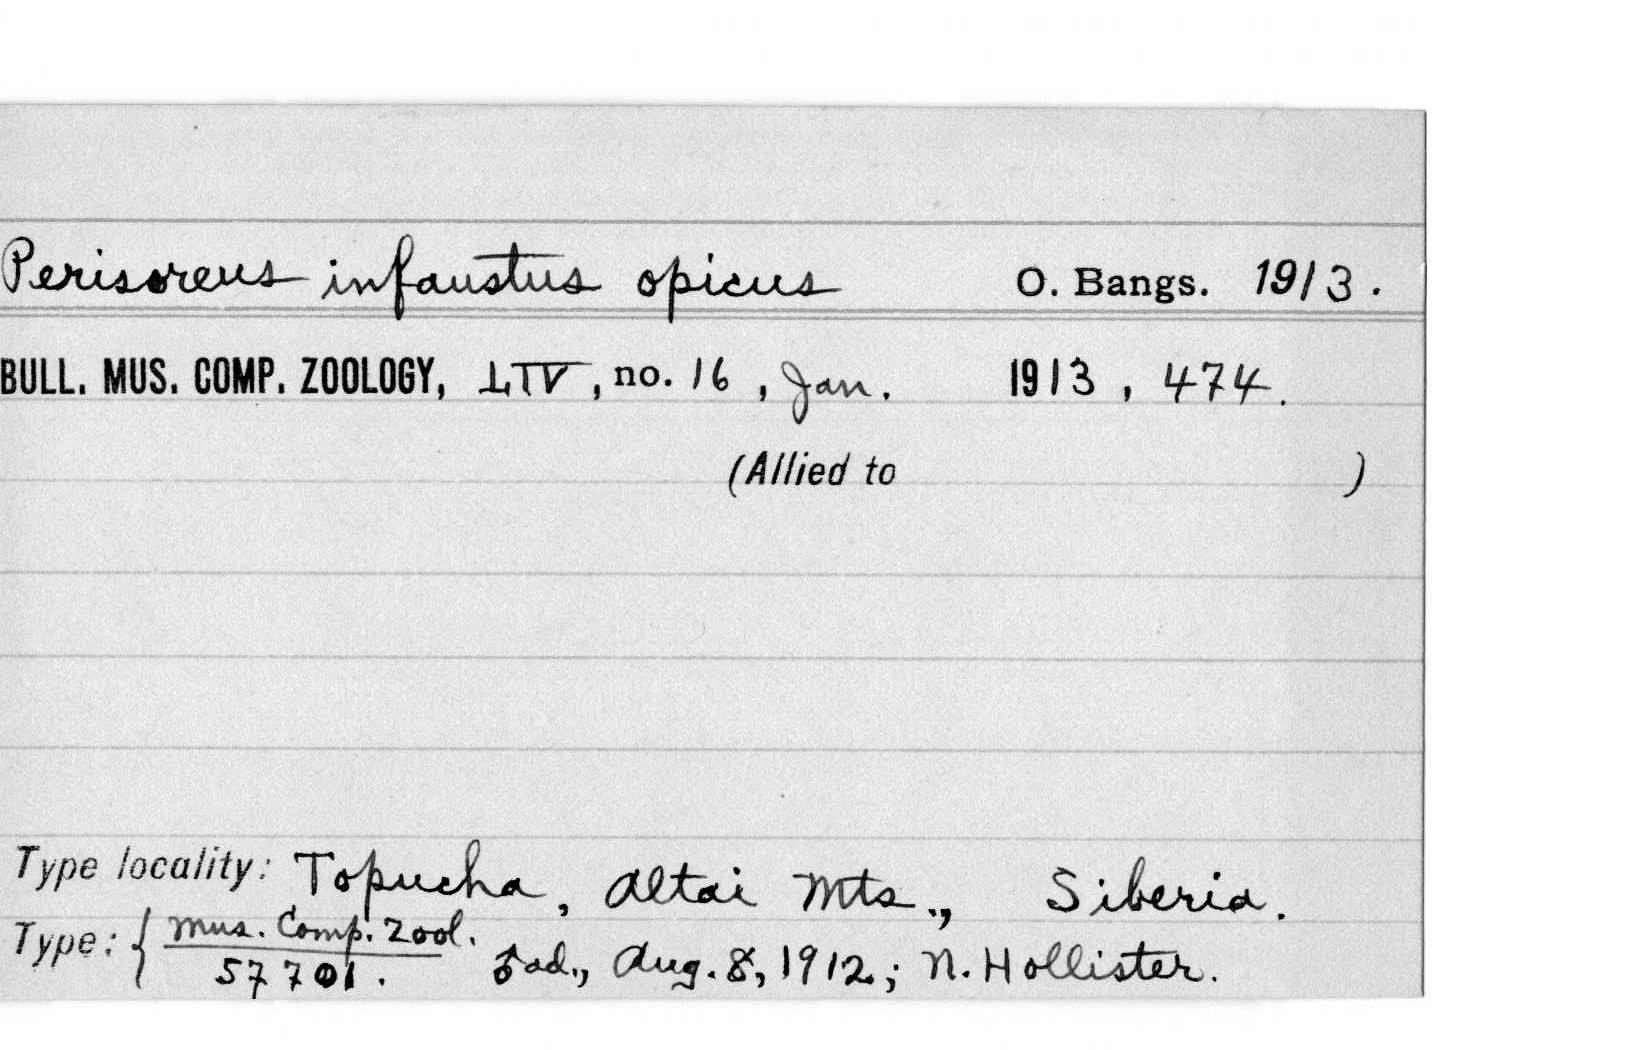 Perisoreus infaustus opicus O. Bangs. 1913.
BULL. MUS. COMP. ZOOLOGY, LIV, no. 16, Jan. 1913, 474.
(Allied to )
Type locality: Topucha, Altai Mts., Siberia.
Type: { Mus. Comp. Zool.
57701. ♂ ad., Aug. 8, 1912; N. Hollister.